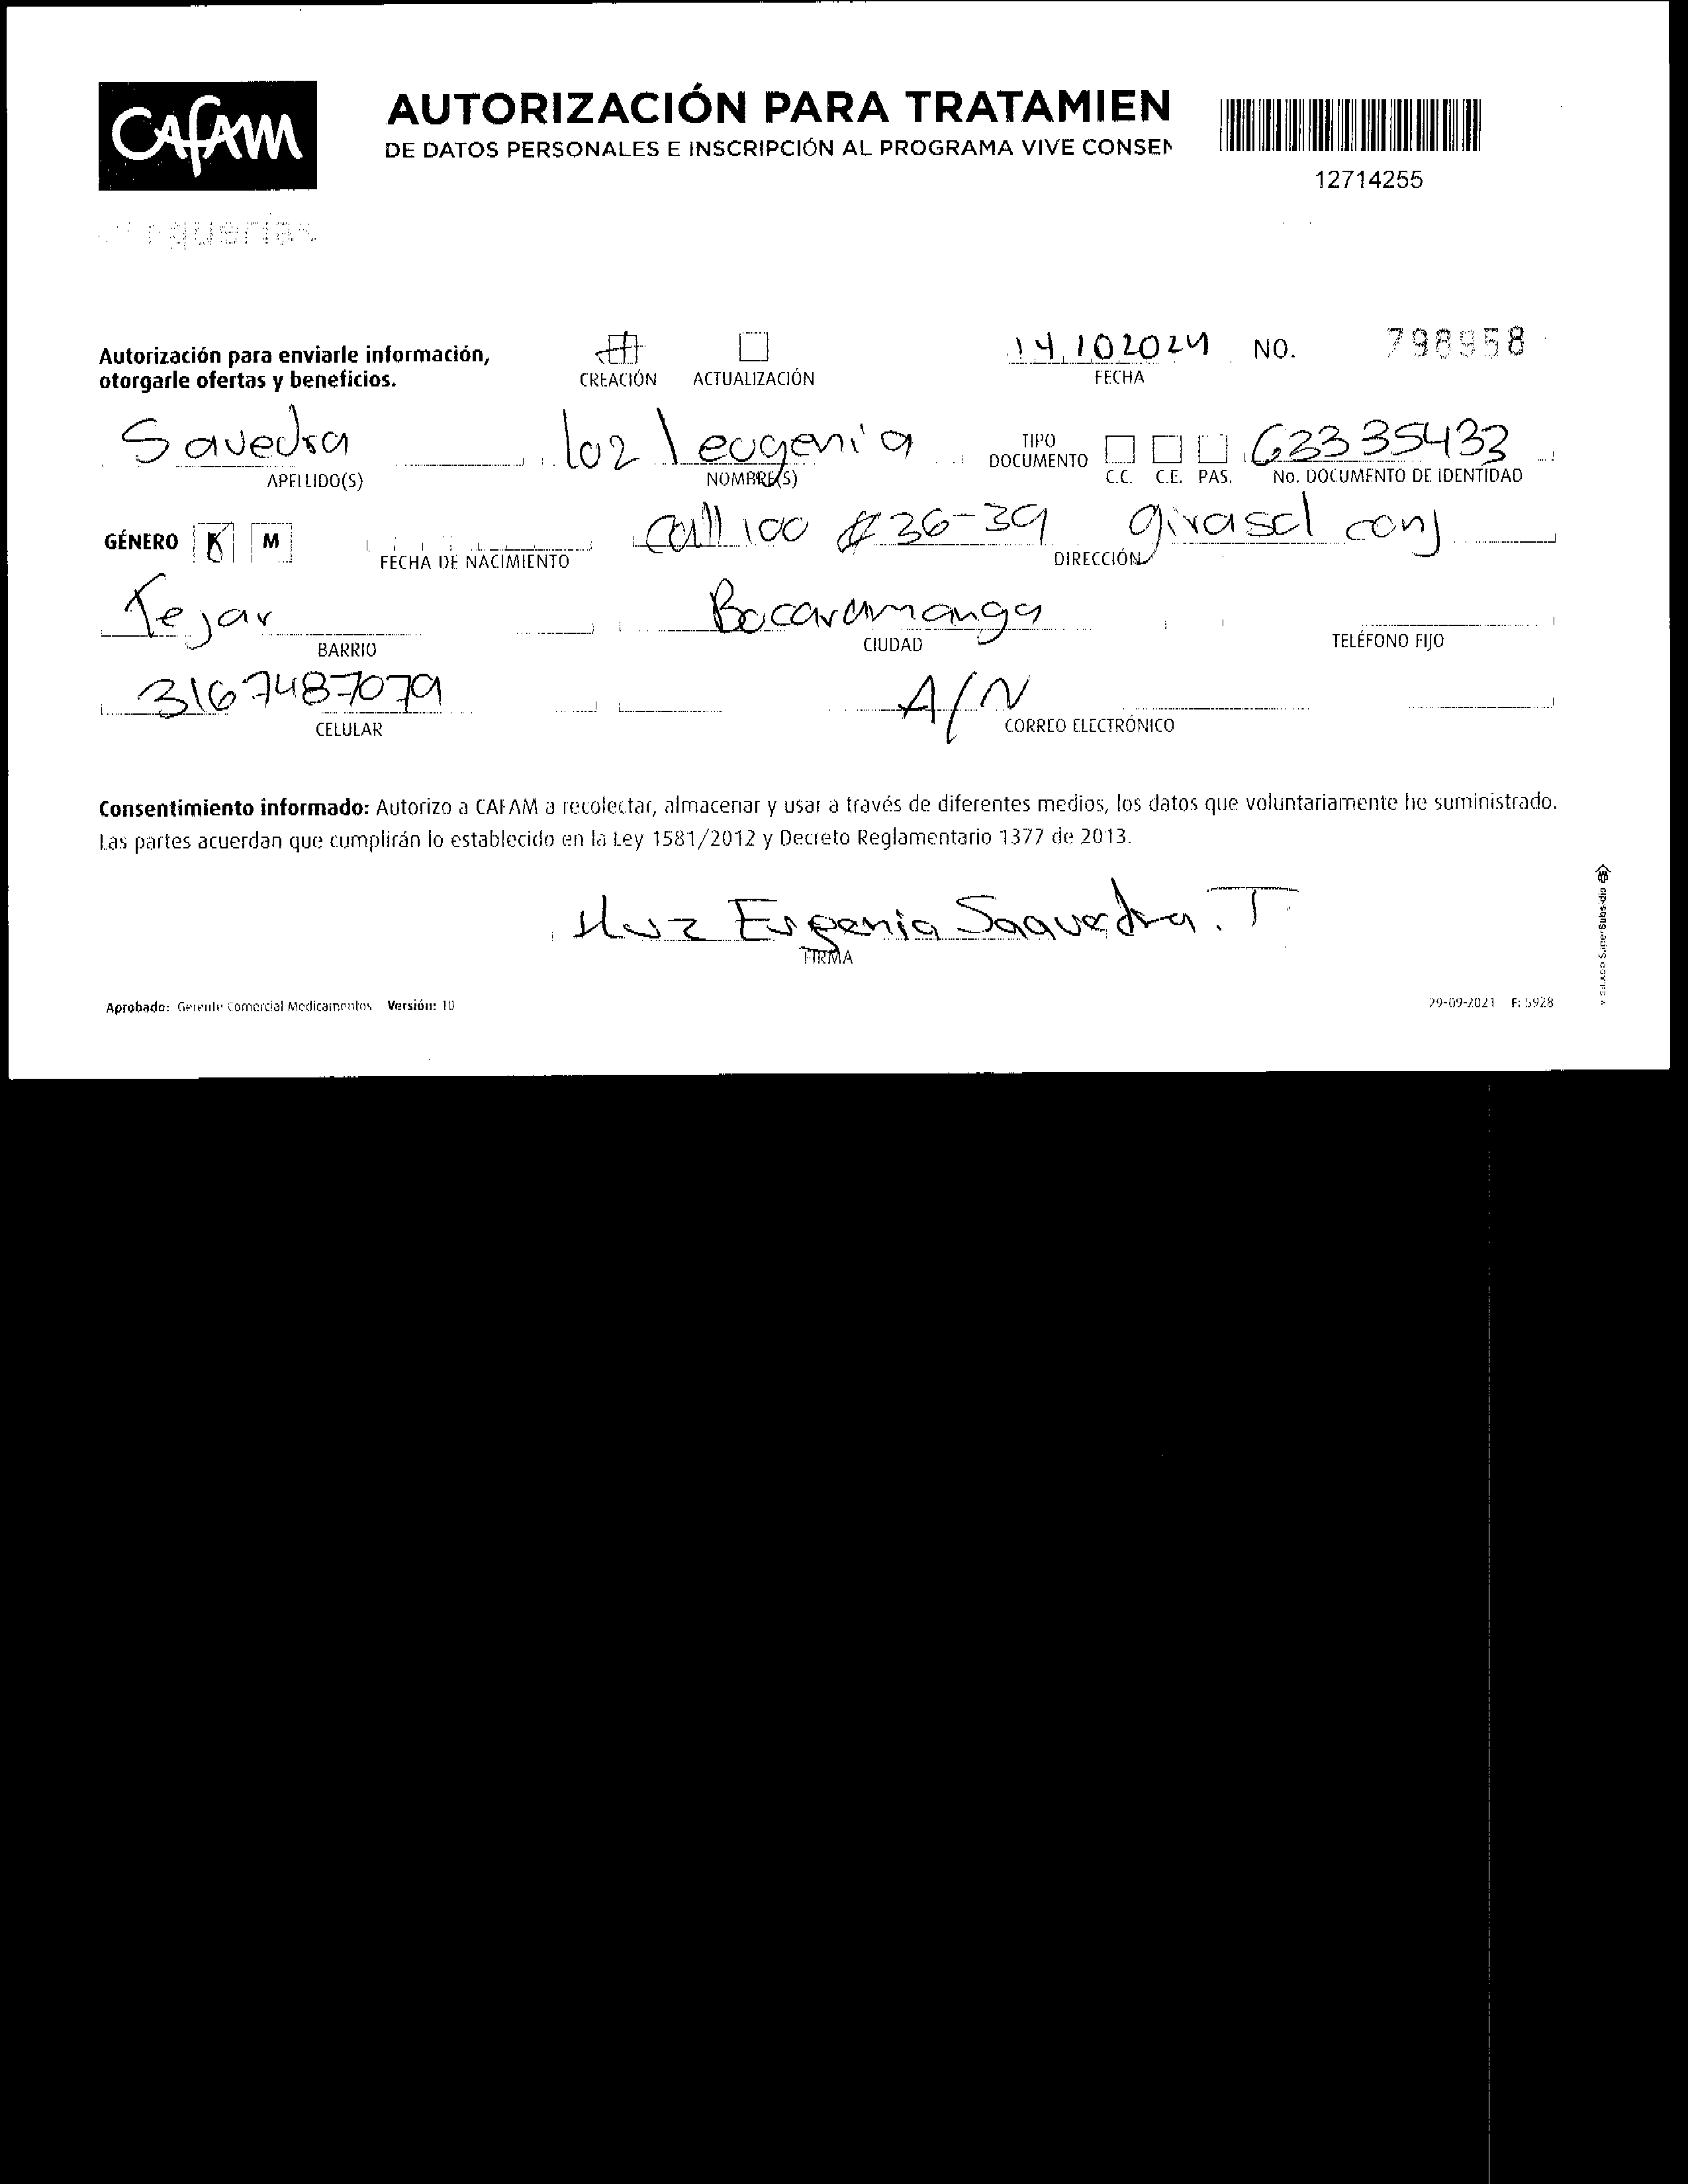 CAFAM
AUTORIZACIÓN PARA TRATAMIEN
DE DATOS PERSONALES E INSCRIPCIÓN AL PROGRAMA VIVE CONSEN
12714255
Autorización para enviarle información,
otorgarle ofertas y beneficios.
CREACIÓN
ACTUALIZACIÓN
14 10 2024
FECHA
NO. 798958
Savedra
APELLIDO(S)
luz eugenia
NOMBRE(S)
TIPO
DOCUMENTO
C.C. C.E. PAS.
63335433
No. DOCUMENTO DE IDENTIDAD
GÉNERO
M
FECHA DE NACIMIENTO
Call 100 # 36-39 girasol conj
DIRECCIÓN
Tejar
BARRIO
Bucaramanga
CIUDAD
TELÉFONO FIJO
3167487079
CELULAR
A/N
CORREO ELECTRÓNICO
Consentimiento informado: Autorizo a CAFAM a recolectar, almacenar y usar a través de diferentes medios, los datos que voluntariamente he suministrado.
Las partes acuerdan que cumplirán lo establecido en la Ley 1581/2012 y Decreto Reglamentario 1377 de 2013.
Luz Eugenia Saavedra. T.
FIRMA
Aprobado: Gerente Comercial Medicamentos Versión: 10
29-09-2021 F: 5928
VIGILADO SuperSubsidio